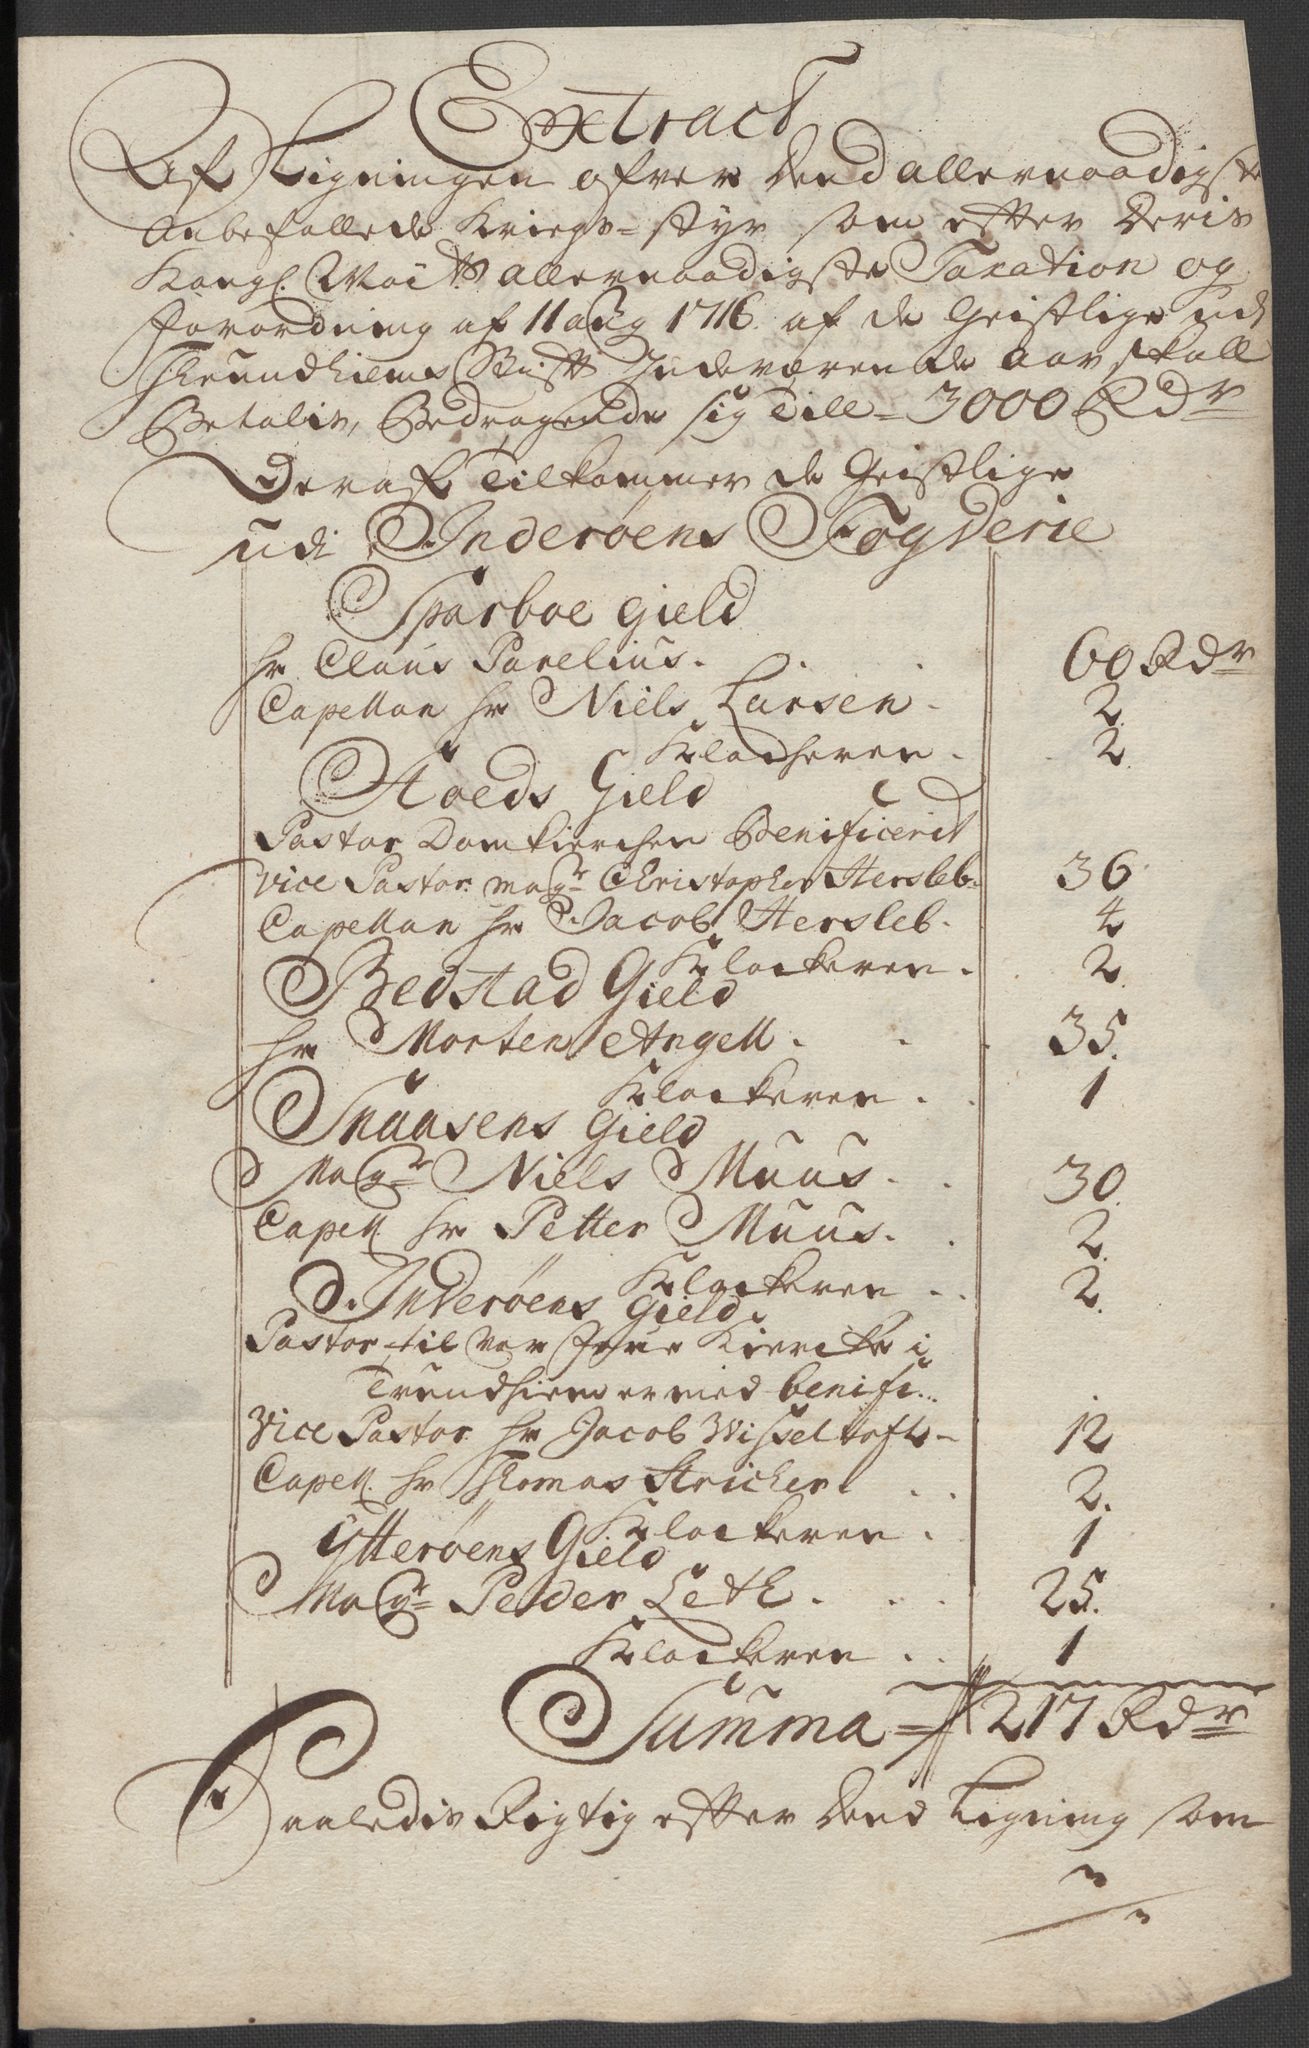 Extract
Af Ligningen ofver dend allernaadigste
Anbefallede Kriegs=styr som efter Deris
Kongl. Mai.ts allernaadigste Taxation og
forordning af 11 aug 1716. af de Geistlige udi
Thrundhiems Stift Indeværende Aar skall
Betalis, Bedragende sig Till = 3000 Rdr
Deraf Tilkommer de Geistlige
udi Inderøens Fogderie
Sparboe gield
hr Claus Parelius. 60 Rdr
Capellan hr Niels Larsen. 2.
Klocheren. 2.
Stoeds Gield
Pastor Domkierchen Benificerit
Vice Pastor magr Christopher Hersleb. 36
Capellan hr Jacob Hersleb. 4
Klockeren. 2.
Bedstad Gield
hr Morten Angell. 35.
Klockeren. 1
Snaasens Gield
Magr Niels Muus. 30.
Capell. hr Petter Muus. 2.
Klockeren 2.
Inderøens Gield.
Pastor til vor Frue Kiercke i
Trundhiem er med benifi..
Vice Pastor hr Jacob Wisseltofte 12
Capell. hr Thomas Stricker. 2.
Klockeren. 1
Ytterøens Gield
Magr Peder Leth. 25.
Klockeren. 1
Summa = 217 Rdr
Saaledis Rigtig efter dend Ligning som